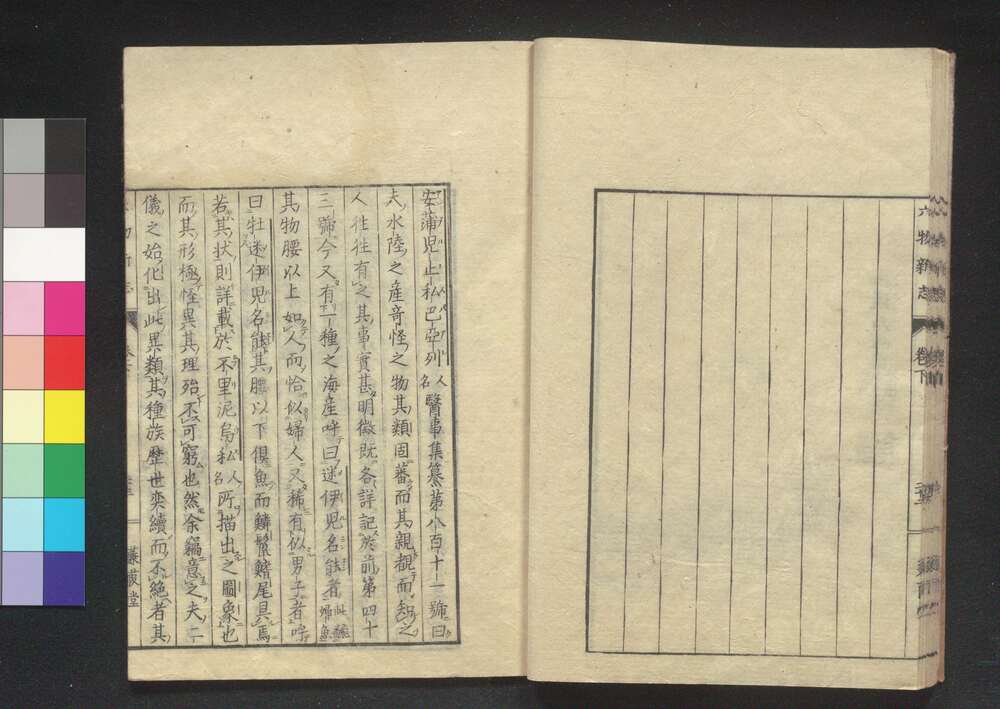 六物新志
卷下
安蒲児止私巴亞列人名醫事集纂第八百十一號曰
夫水陸之産竒怪之物其類固蕃而其親覩而知之
人徃徃有之其事實甚明徴既各詳記於前第四十
三號今又有一種之海産呼曰迷伊児名能者
其物腰以上如人而恰似婦人又稀有似男子者呼
曰牡迷伊児名能其腰以下倶魚而鱗鬣鰭尾具焉
若其状則詳載於不里泥烏私人名所描出之圖象也
而其形極怪異其理殆不可窮也然余竊意之夫二
儀之始化出此異類其種族歴世奕續而不絶者其
蒹葭堂